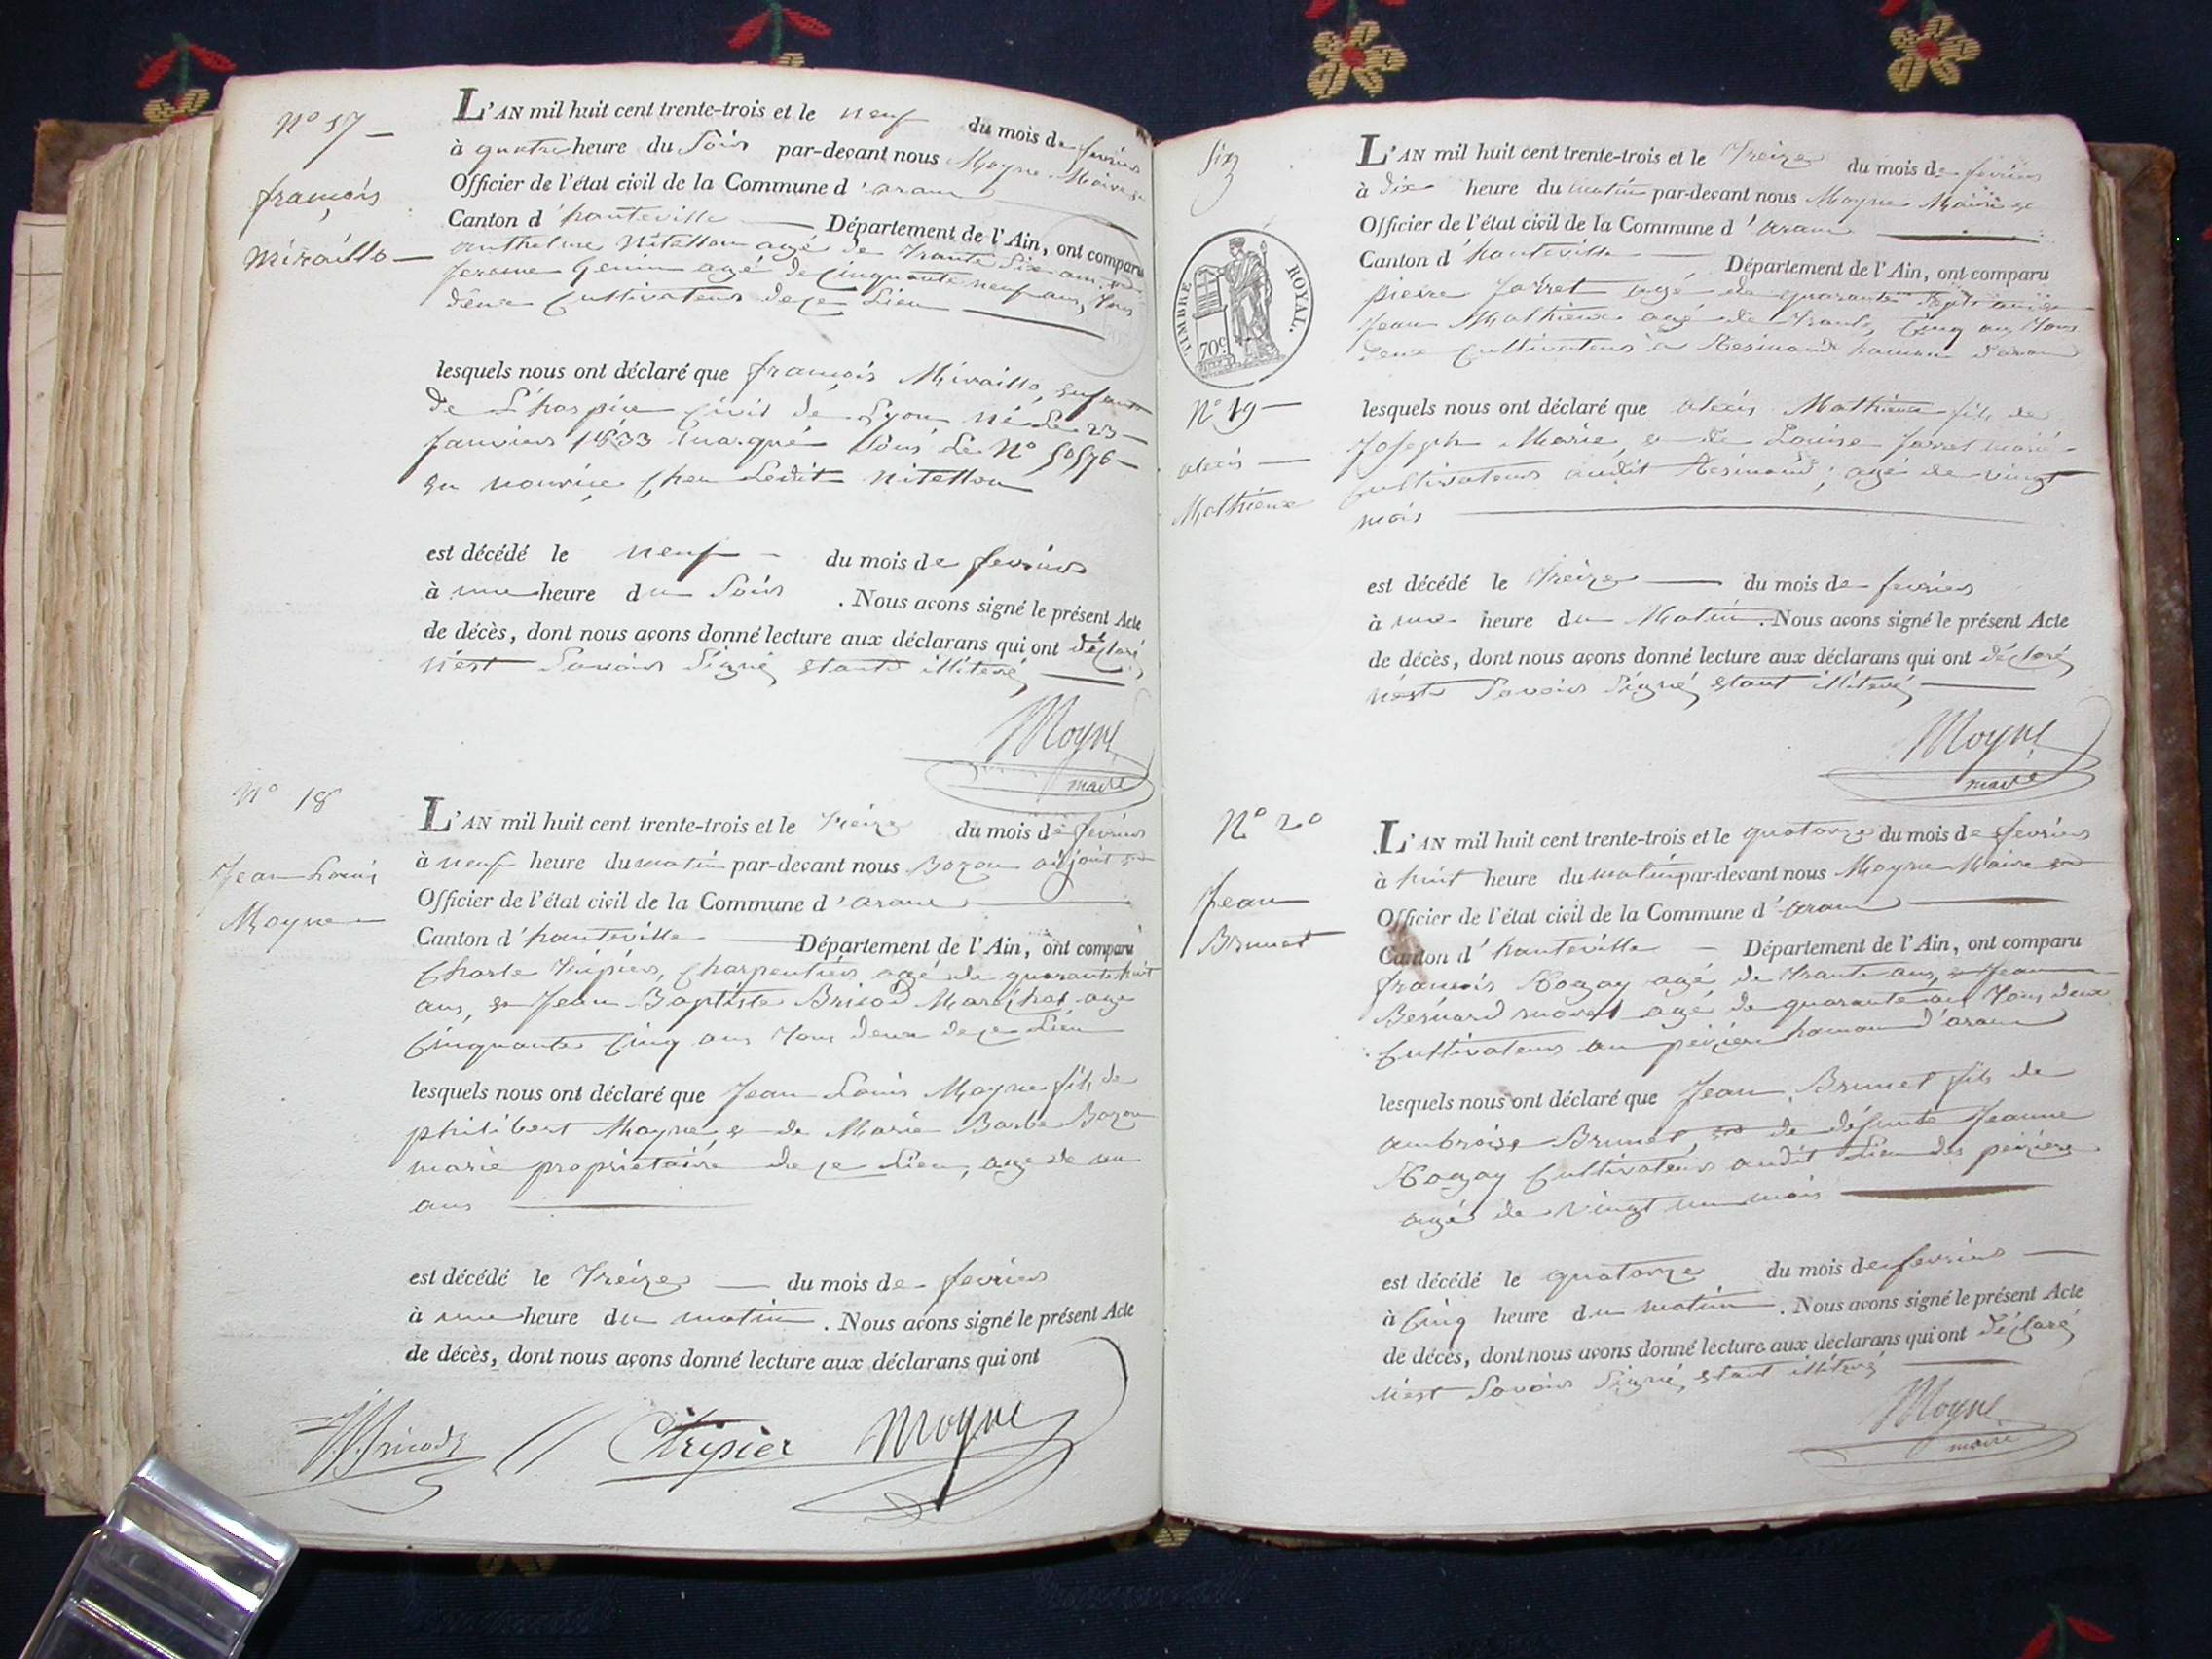 N° 17
françois
Miraillo
L'AN mil huit cent trente-trois et le neuf du mois de fevrier
à quatre heure du Soir par-devant nous Moyne Maire
Officier de l'état civil de la Commune d'aranc
Canton d'hauteville Département de l'Ain, ont comparu
anthelme Nitellon agé de trante Six ans
Jerome Genin agé de Cinquante neuf ans, tous
deux Cultivateurs de Ce Lieu
lesquels nous ont déclaré que françois Miraillo, enfant
de L'hospice Civil de Lyon né le 23
Janvier 1833 marqué Sous Le N° 50576
en nourrice Chez Ledit Nitellon
est décédé le neuf du mois de fevrier
à une heure du Soir . Nous avons signé le présent Acte
de décès, dont nous avons donné lecture aux déclarans qui ont déclaré
n'est Savoir Signé, etant illiteré
Moyne
maire
N° 18
Jean Louis
Moyne
L'AN mil huit cent trente-trois et le treize du mois de fevrier
à neuf heure du matin par-devant nous Bozon adjoint
Officier de l'état civil de la Commune d'aranc
Canton d'hauteville Département de l'Ain, ont comparu
Charle Tripier, Charpentier agé de quarante huit
ans, et Jean Baptiste Bricod Marechal agé
Cinquante Cinq ans tous deux de Ce Lieu
lesquels nous ont déclaré que Jean Louis Moyne fils de
philibert Moyne, et de Marie Barbe Bozon
marié proprietaire de Ce Lieu, agé de un
ans
est décédé le treize du mois de fevrier
à une heure du matin . Nous avons signé le présent Acte
de décès, dont nous avons donné lecture aux déclarans qui ont
Bricod Ctripier Moyne
Six
TIMBRE ROYAL.
70c
L'AN mil huit cent trente-trois et le treize du mois de fevrier
à dix heure du matin par-devant nous Moyne Maire et
Officier de l'état civil de la Commune d'aranc
Canton d'hauteville Département de l'Ain, ont comparu
pierre Jarret agé de quarante Sept ans et
Jean Mathieux agé de trante Cinq ans tous
deux Cultivateurs a Resinand hameau d'aranc
N° 19
alexis
Mathieux
lesquels nous ont déclaré que alexis Mathieux fils de
Joseph Marie, et de Louise Jarret marié
Cultivateurs audit Resinand; agé de vingt
mois
est décédé le treize du mois de fevrier
à une heure du Matin . Nous avons signé le présent Acte
de décès, dont nous avons donné lecture aux déclarans qui ont déclaré
n'est Savoir Signé, etant illiteré
Moyne
maire
N° 20
Jean
Brunet
L'AN mil huit cent trente-trois et le quatorze du mois de fevrier
à huit heure du matin par-devant nous Moyne Maire et
Officier de l'état civil de la Commune d'aranc
Canton d'hauteville Département de l'Ain, ont comparu
françois Rogay agé de trante ans, et Jean
Bernard agé de quarante ans tous deux
Cultivateurs au hameau d'aranc
lesquels nous ont déclaré que Jean Brunet fils de
ambroise Brunet, et de défunte Jeanne
Rogay Cultivateurs audit Lieu des
agé de vingt un mois
est décédé le quatorze du mois de fevrier
à Cinq heure du matin . Nous avons signé le présent Acte
de décès, dont nous avons donné lecture aux déclarans qui ont déclaré
n'est Savoir Signé, etant illiteré
Moyne
maire